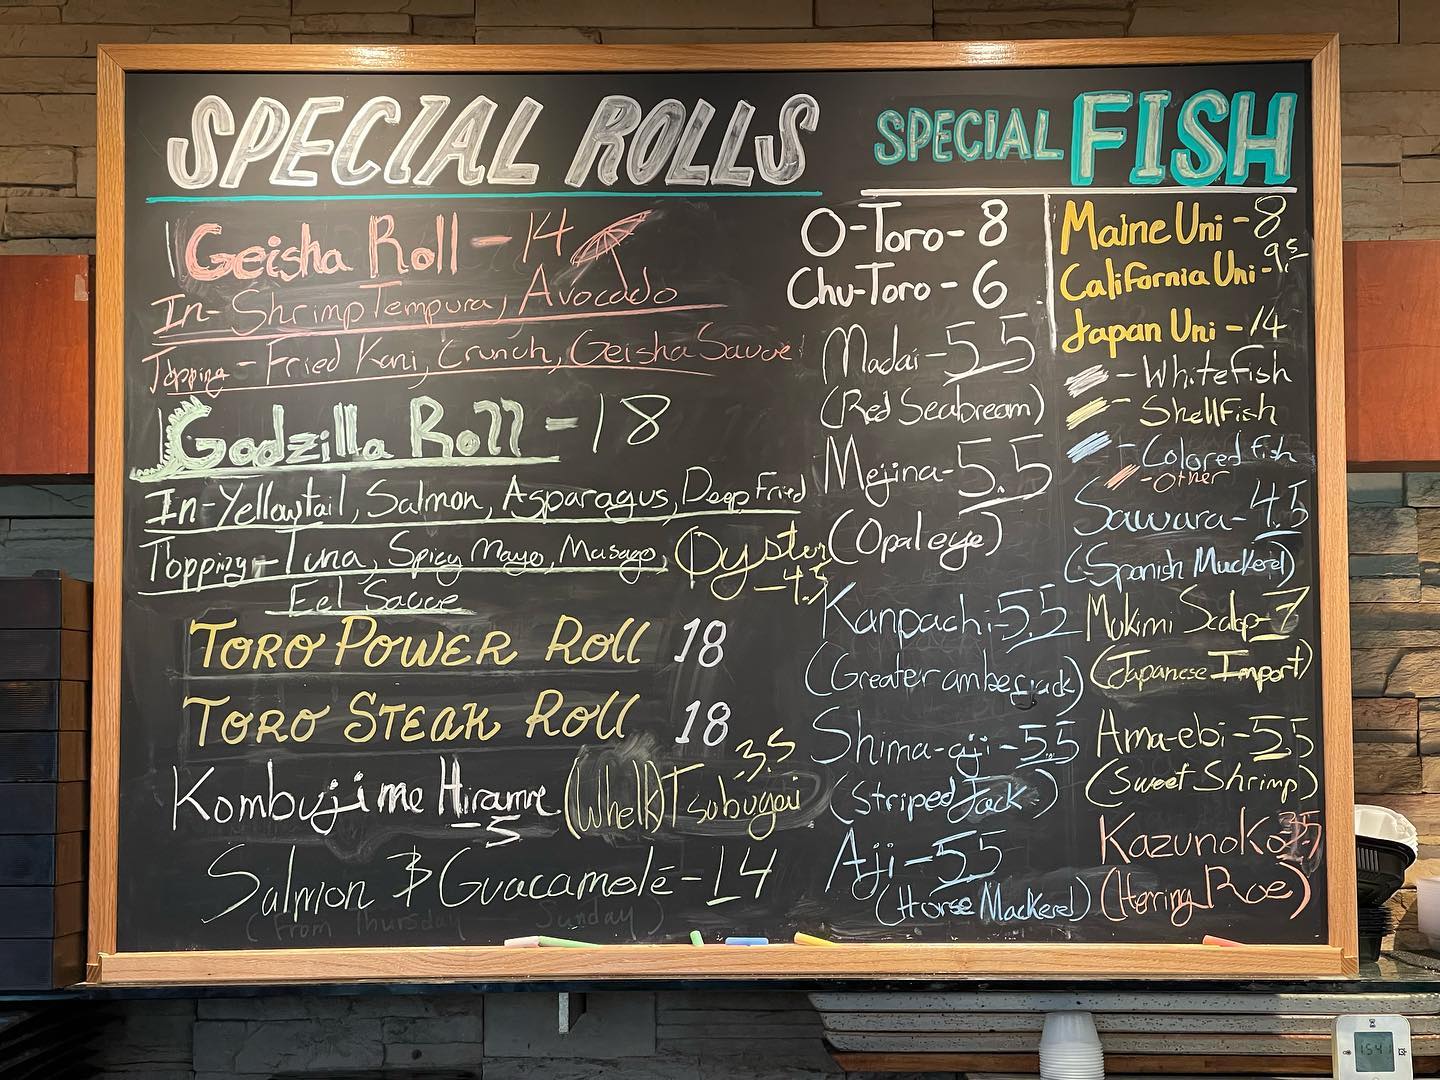 SPECIAL ROLLS
Geisha Roll - 14
In- Shrimp Tempura, Avocado
Topping - Fried Kani, Crunch, Geisha Sauce
Godzilla Roll - 18
In-Yellowtail, Salmon, Asparagus, Deep Fried
Topping - Tuna, Spicy Mayo, Masago,
Eel Sauce
Oyster
- 4.5
TORO POWER Roll 18
TORO STEAK Roll 18
Kombujime Hirame
- 5
(Whelk) Tsubugai
- 3.5
Salmon & Guacamolé - 14
(From Thursday Sunday)
SPECIAL FISH
O-Toro - 8
Chu-Toro - 6
Madai - 5.5
(Red Seabream)
Mejina - 5.5
(Opaleye)
Kanpachi - 5.5
(Greater amberjack)
Shima-aji - 5.5
(Striped Jack)
Aji - 5.5
(Horse Mackerel)
Maine Uni - 8
California Uni - 9.5
Japan Uni - 14
- Whitefish
- Shellfish
- Colored fish
- Other
Sawara - 4.5
(Spanish Mackerel)
Mukimi Scalop - 7
(Japanese Import)
Ama-ebi - 5.5
(Sweet Shrimp)
Kazunoko 3.5
(Herring Roe)